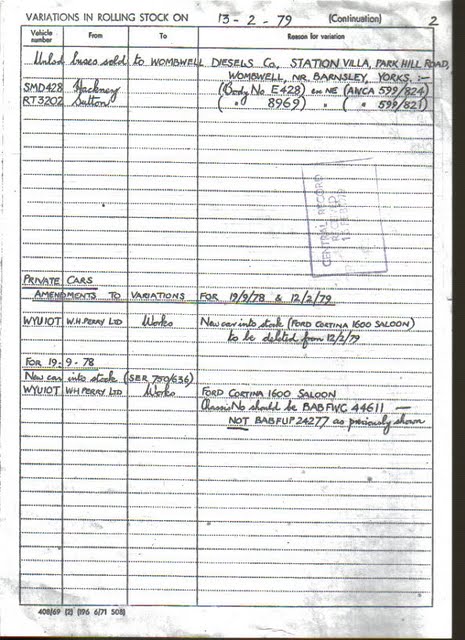 VARIATIONS IN ROLLING STOCK ON 13-2-79 (Continuation) 2
Vehicle number From To Reason for variation
Unlsd buses sold to WOMBWELL DIESELS Co, STATION VILLA, PARK HILL ROAD,
WOMBWELL, NR. BARNSLEY, YORKS. :-
SMD428 Hackney (Body No E428) on NE (ANCA 599/824)
RT3202 Sutton ( " 8969) " ( " 599/821)
CENTRAL RECORD
RECEIVED
PRIVATE CARS
AMENDMENTS TO VARIATIONS FOR 19/9/78 & 12/2/79
WYU10T W.H. PERRY LTD Works New car into stock (FORD CORTINA 1600 SALOON)
to be deleted from 12/2/79
FOR 19-9-78
New car into stock (SER 750/636)
WYU10T W.H PERRY LTD Works FORD CORTINA 1600 SALOON
Chassis No should be BABFWC 44611 —
NOT BABFUP 24277 as previously shown
408/69 (2) (196 6/71 508)